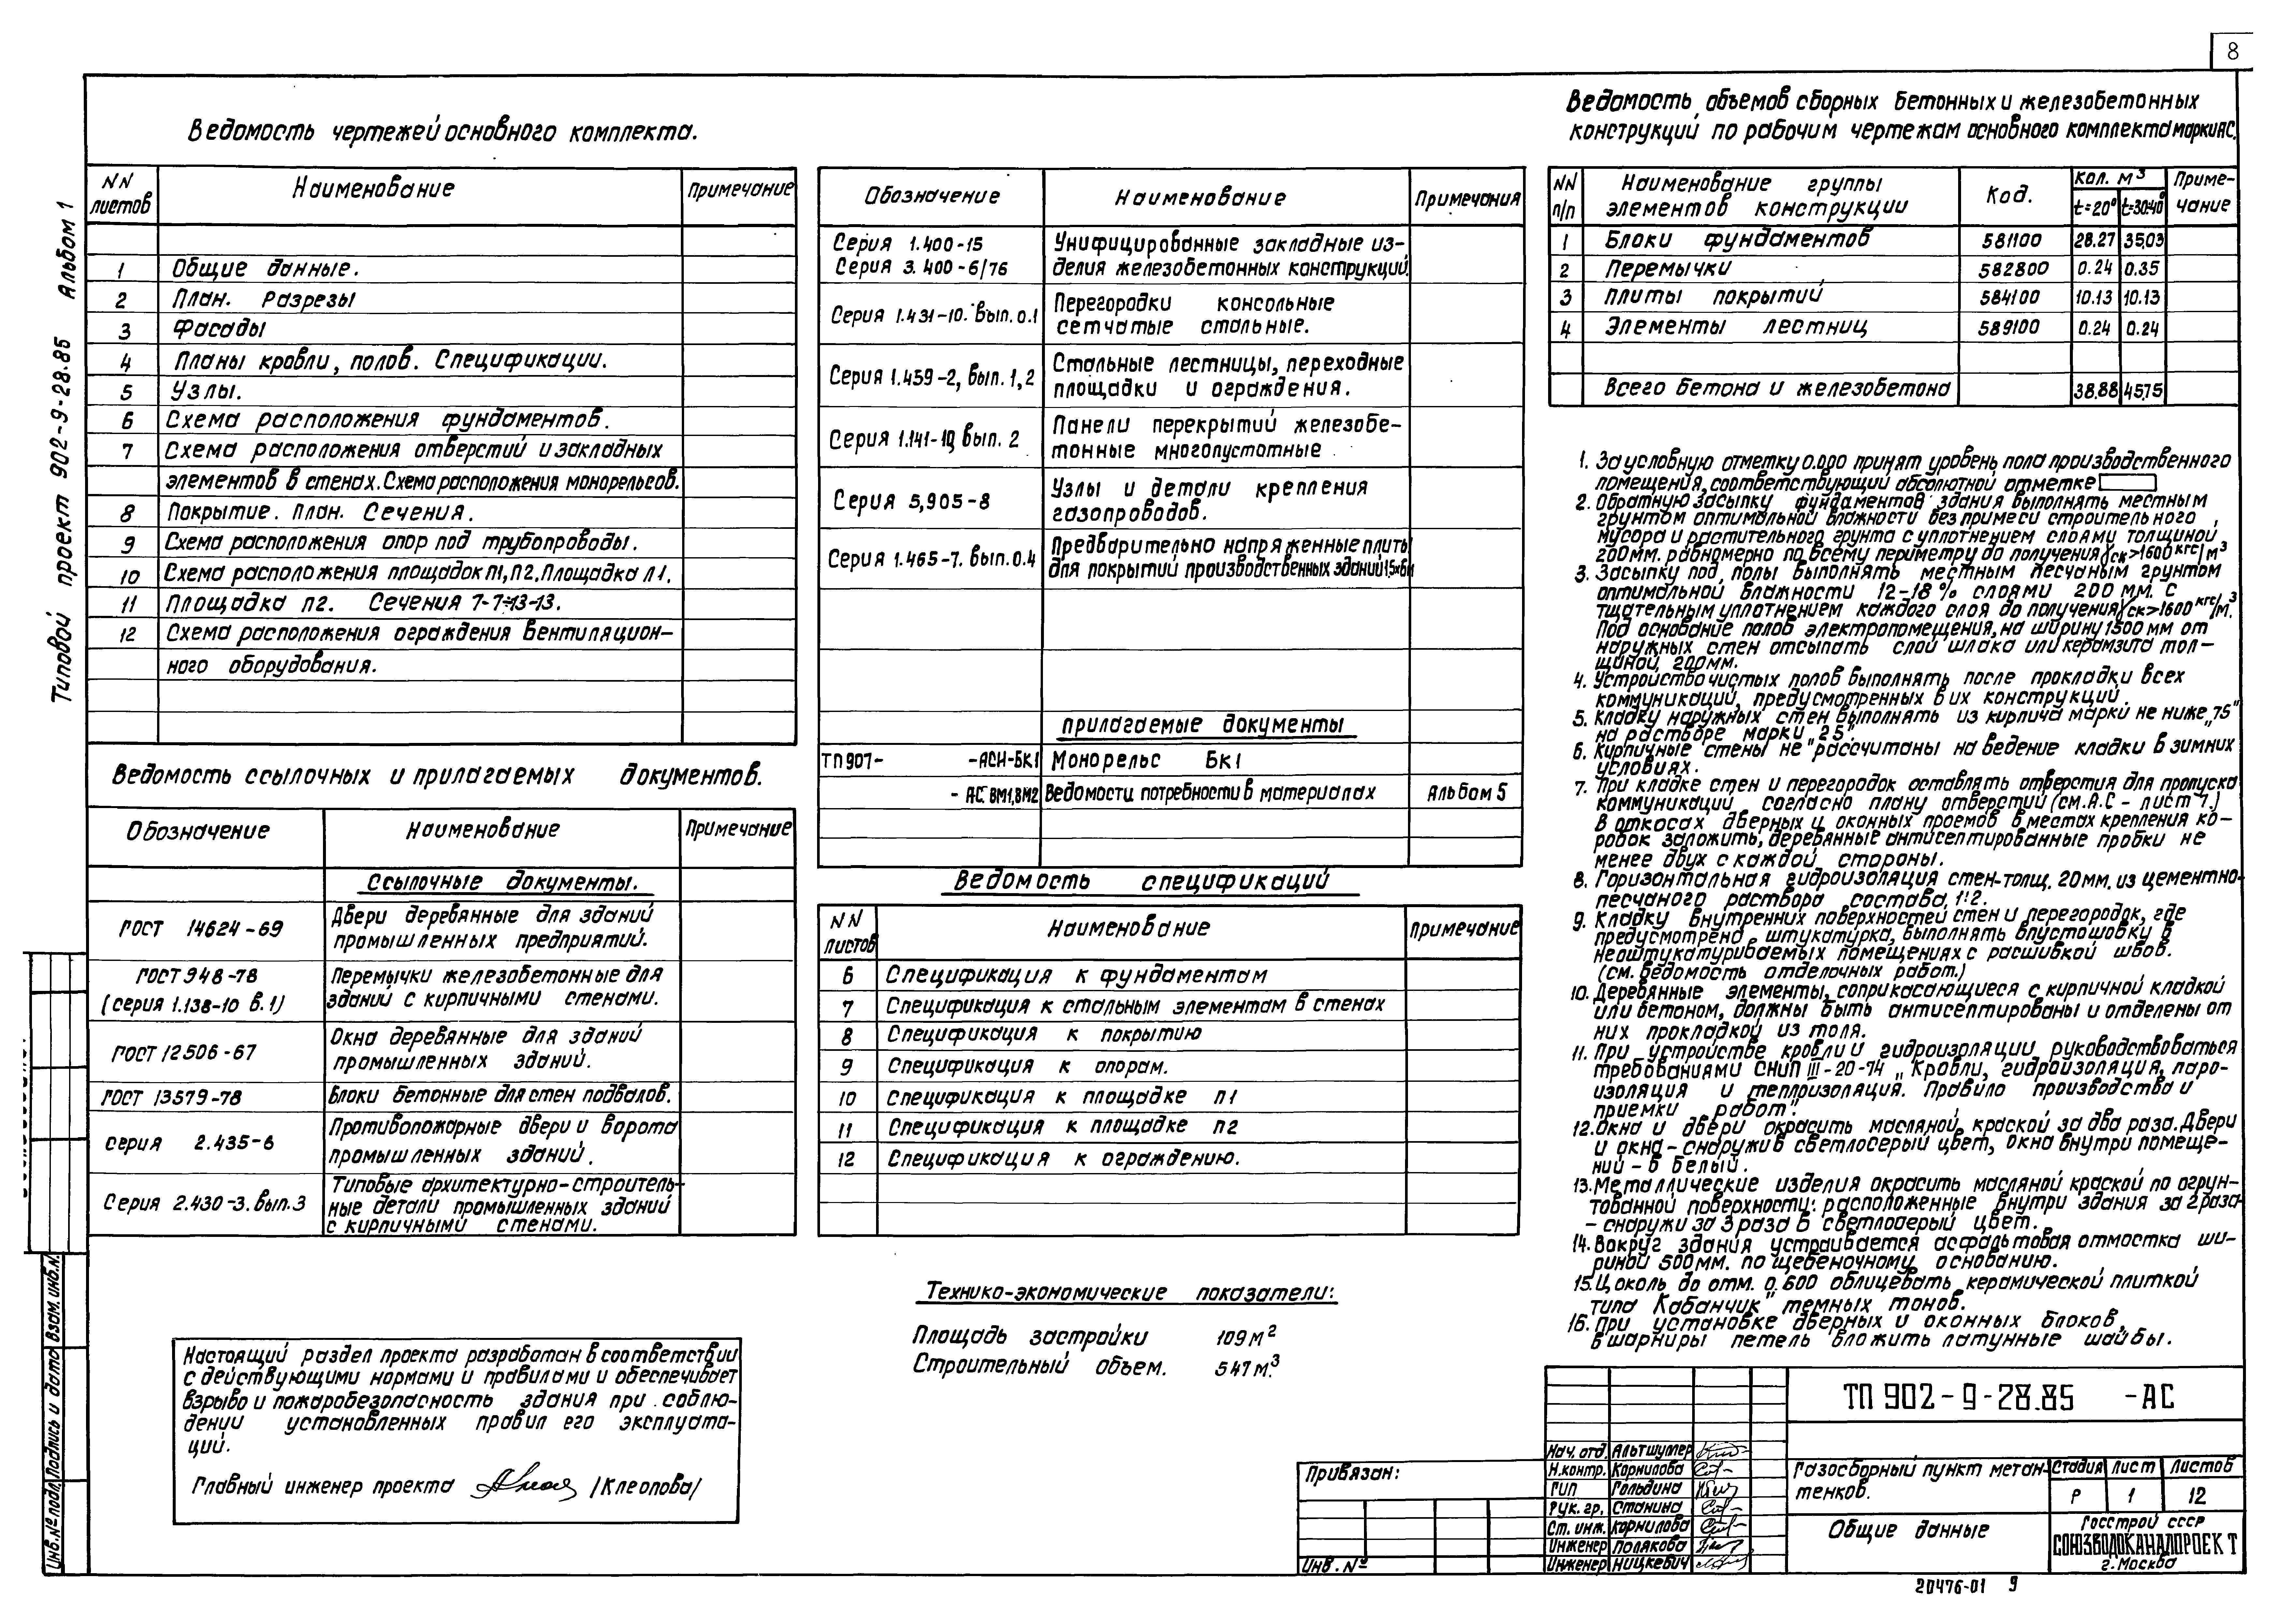 8
Типовой проект 902-9-28.85 Альбом 1
Ведомость чертежей основного комплекта.
NN листов
Наименование
Примечание
1 Общие данные.
2 План. Разрезы
3 Фасады
4 Планы кровли, полов. Спецификации.
5 Узлы.
6 Схема расположения фундаментов.
7 Схема расположения отверстий и закладных
элементов в стенах. Схема расположения монорельсов.
8 Покрытие. План. Сечения.
9 Схема расположения опор под трубопроводы.
10 Схема расположения площадок П1, П2. Площадка Л1.
11 Площадка п2. Сечения 7-7÷13-13.
12 Схема расположения ограждения вентиляцион-
ного оборудования.
Ведомость ссылочных и прилагаемых документов.
Обозначение
Наименование
Примечание
Ссылочные документы.
ГОСТ 14624-69
Двери деревянные для зданий
промышленных предприятий.
ГОСТ 948-78
(серия 1.138-10 в.1)
Перемычки железобетонные для
зданий с кирпичными стенами.
ГОСТ 12506-67
Окна деревянные для зданий
промышленных зданий.
ГОСТ 13579-78
Блоки бетонные для стен подвалов.
серия 2.435-6
Противопожарные двери и ворота
промышленных зданий.
Серия 2.430-3. вып.3
Типовые архитектурно-строитель-
ные детали промышленных зданий
с кирпичными стенами.
Настоящий раздел проекта разработан в соответствии
с действующими нормами и правилами и обеспечивает
взрыво и пожаробезопасность здания при соблю-
дении установленных правил его эксплуата-
ций.
Главный инженер проекта /Клеопова/
Обозначение
Наименование
Примечания
Серия 1.400-15
Серия 3.400-6/76
Унифицированные закладные из-
делия железобетонных конструкций.
Серия 1.431-10. вып.0.1
Перегородки консольные
сетчатые стальные.
Серия 1.459-2, вып. 1,2
Стальные лестницы, переходные
площадки и ограждения.
Серия 1.141-10, вып. 2
Панели перекрытий железобе-
тонные многопустотные
Серия 5.905-8
Узлы и детали крепления
газопроводов.
Серия 1.465-7. вып.0.4
Предварительно напряженные плиты
для покрытий производственных зданий 1,5х6м
прилагаемые документы
ТП 907- -АСИ-БК1 Монорельс БК1
- АС ВМ1,ВМ2 Ведомости потребности в материалах Альбом 5
Ведомость спецификаций
NN листов
Наименование
Примечание
6 Спецификация к фундаментам
7 Спецификация к стальным элементам в стенах
8 Спецификация к покрытию
9 Спецификация к опорам.
10 Спецификация к площадке п1
11 Спецификация к площадке п2
12 Спецификация к ограждению.
Технико-экономические показатели:
Площадь застройки 109 м²
Строительный объем. 547 м³.
Ведомость объемов сборных бетонных и железобетонных
конструкций по рабочим чертежам основного комплекта марки АС.
NN п/п
Наименование группы
элементов конструкции
Код.
Кол. м³
t=20° t=30:40°
Приме-
чание
1 Блоки фундаментов 581100 28.27 35.03
2 Перемычки 582800 0.24 0.35
3 Плиты покрытий 584100 10.13 10.13
4 Элементы лестниц 589100 0.24 0.24
Всего бетона и железобетона 38.88 45.75
1. За условную отметку 0.000 принят уровень пола производственного
помещения, соответствующий абсолютной отметке
2. Обратную засыпку фундаментов здания выполнять местным
грунтом оптимальной влажности без примеси строительного,
мусора и растительного грунта с уплотнением слоями толщиной
200мм. равномерно по всему периметру до получения γск>1600 кгс/м³
3. Засыпку под полы выполнять местным песчаным грунтом
оптимальной влажности 12-18% слоями 200 мм. с
тщательным уплотнением каждого слоя до получения γск>1600 кгс/м³.
Под основание полов электропомещения, на ширину 1500 мм от
наружных стен отсыпать слой шлака или керамзита тол-
щиной 200мм.
4. Устройство чистых полов выполнять после прокладки всех
коммуникаций, предусмотренных в их конструкций.
5. Кладку наружных стен выполнять из кирпича марки не ниже „75"
на растворе марки „25".
6. Кирпичные стены не рассчитаны на ведение кладки в зимних
условиях.
7. При кладке стен и перегородок оставлять отверстия для пропуска
коммуникаций согласно плану отверстий (см. А.С - лист 7.)
В откосах дверных и оконных проемов в местах крепления ко-
робок заложить, деревянные антисептированные пробки не
менее двух с каждой стороны.
8. Горизонтальная гидроизоляция стен-толщ. 20мм. из цементно-
песчаного раствора состава 1:2.
9. Кладку внутренних поверхностей стен и перегородок, где
предусмотрена штукатурка, выполнять впустошовку в
неоштукатуриваемых помещениях с расшивкой швов.
(см. ведомость отделочных работ.)
10. Деревянные элементы, соприкасающиеся с кирпичной кладкой
или бетоном, должны быть антисептированы и отделены от
них прокладкой из толя.
11. При устройстве кровли и гидроизоляции руководствоваться
требованиями СНиП III-20-74 „Кровли, гидроизоляция, паро-
изоляция и теплоизоляция. Правило производства и
приемки работ".
12. Окна и двери окрасить масляной краской за два раза. Двери
и окна - снаружи в светлосерый цвет, окна внутри помеще-
ний - в белый.
13. Металлические изделия окрасить масляной краской по огрун-
тованной поверхности: расположенные внутри здания за 2 раза-
- снаружи за 3 раза в светлосерый цвет.
14. Вокруг здания устраивается асфальтовая отмостка ши-
риной 500мм. по щебеночному основанию.
15. Цоколь до отм. 0.600 облицевать керамической плиткой
типа Кабанчик" темных тонов.
16. При установке дверных и оконных блоков,
в шарниры петель вложить латунные шайбы.
ТП 902-9-28.85 -АС
Нач. отд. Альтшулер
Н.контр. Корнилова
ГИП Гольдина
Рук. гр. Станина
Ст. инж. Корнилова
Инженер Полякова
Инженер Ницкевич
Газосборный пункт метан-
тенков.
Стадия Лист Листов
Р 1 12
Общие данные
Госстрой СССР
СОЮЗВОДОКАНАЛПРОЕКТ
г. Москва
Привязан:
Инв. №
Инв.№ подл. Подпись и дата Взам. инв.н.
20476-01 9